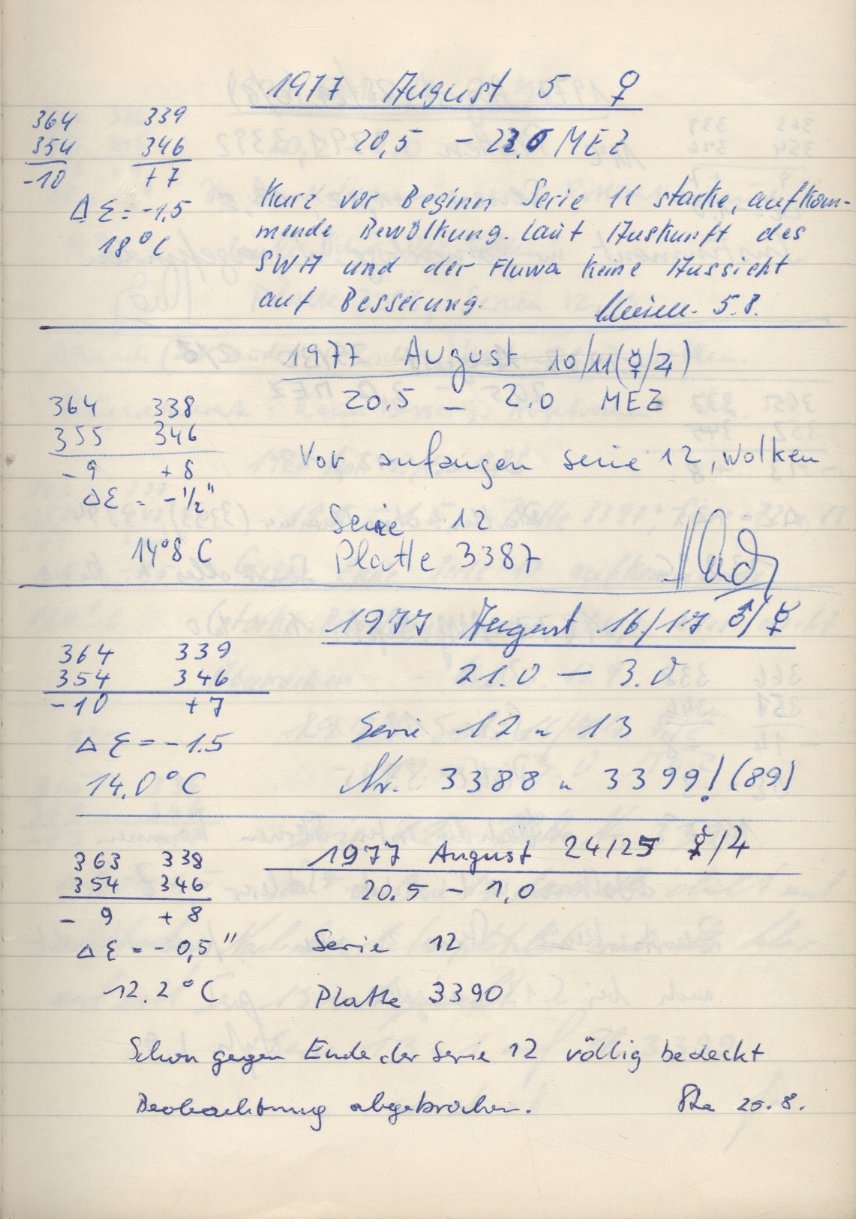 1977 August 5 ♀
364 339
354 346 20,5 – 23.0 MEZ
-10 +7
Δε = -1,5
18°C
Kurz vor Beginn Serie 11 starke, aufkom-
mende Bewölkung. Laut Auskunft des
SWA und der Fluwa keine Aussicht
auf Besserung. 5.8.
1977 August 10/11 (☿/♃)
364 338 20.5 – 2.0 MEZ
355 346
-9 +8 Vor anfangen serie 12, wolken
Δε = -½"
Serie 12
14°8 C Platte 3387
1977 August 16/17 ♂/☿
364 339
354 346 21.0 – 3.0
-10 +7
Δε = -1.5 Serie 12 u 13
14,0°C Nr. 3388 u 3399! (89)
1977 August 24/25 ☿/♃
363 338
354 346 20.5 – 1,0
- 9 + 8
Δε = - 0,5" Serie 12
12.2°C Platte 3390
Schon gegen Ende der Serie 12 völlig bedeckt
Beobachtung abgebrochen. 25.8.